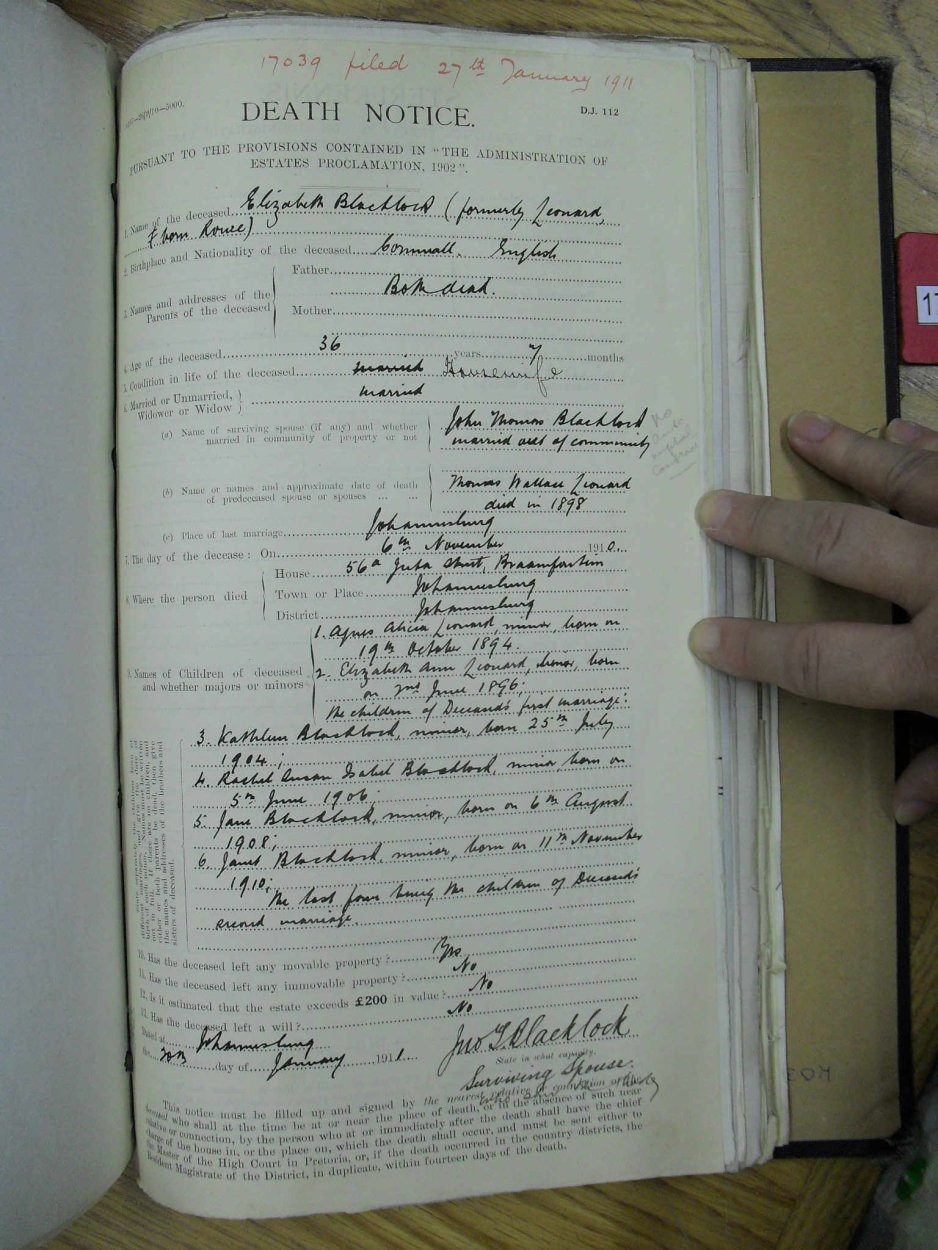 17039 filed 27th January 1911
DEATH NOTICE.
D.J. 112
PURSUANT TO THE PROVISIONS CONTAINED IN "THE ADMINISTRATION OF
ESTATES PROCLAMATION, 1902".
1. Name of the deceased Elizabeth Blacklock (formerly Leonard,
& born Rouse)
2. Birthplace and Nationality of the deceased Cornwall. English
Father
3. Names and addresses of the Parents of the deceased Both dead.
Mother
4. Age of the deceased 36 years 7 months
5. Condition in life of the deceased married Housewife
6. Married or Unmarried, Widower or Widow married
(a) Name of surviving spouse (if any) and whether married in community of property or not John Thomas Blacklock
married out of community
(b) Name or names and approximate date of death of predeceased spouse or spouses ... ... Thomas Wallace Leonard
died in 1898
(c) Place of last marriage Johannesburg
7. The day of the decease: On 6th November 1910.
8. Where the person died
House 56a Juta Street, Braamfontein
Town or Place Johannesburg
District Johannesburg
9. Names of Children of deceased and whether majors or minors
1. Agnes Alicia Leonard, minor, born on
19th October 1894.
2. Elizabeth Ann Leonard, minor, born
on 2nd June 1896;
the children of Deceased's first marriage:
3. Kathleen Blacklock, minor, born 25th July
1904;
4. Rachel Susan Isabel Blacklock, minor, born on
5th June 1906;
5. Jane Blacklock, minor, born on 6th August
1908;
6. Janet Blacklock, minor, born on 11th November
1910;
the last four being the children of Deceased's
second marriage.
the names and addresses of the brothers and
sisters of deceased.
10. Has the deceased left any movable property? Yes
11. Has the deceased left any immovable property? No
12. Is it estimated that the estate exceeds £200 in value? No
13. Has the deceased left a will? No
Dated at Johannesburg
the 20th day of January 1911.
Jno T. Blacklock
State in what capacity.
Surviving Spouse.
This notice must be filled up and signed by the nearest relative or connexion of the
deceased who shall at the time be at or near the place of death, or in the absence of such near
relative or connection, by the person who at or immediately after the death shall have the chief
charge of the house in, or the place on, which the death shall occur, and must be sent either to
the Master of the High Court in Pretoria, or, if the death occurred in the country districts, the
Resident Magistrate of the District, in duplicate, within fourteen days of the death.
17